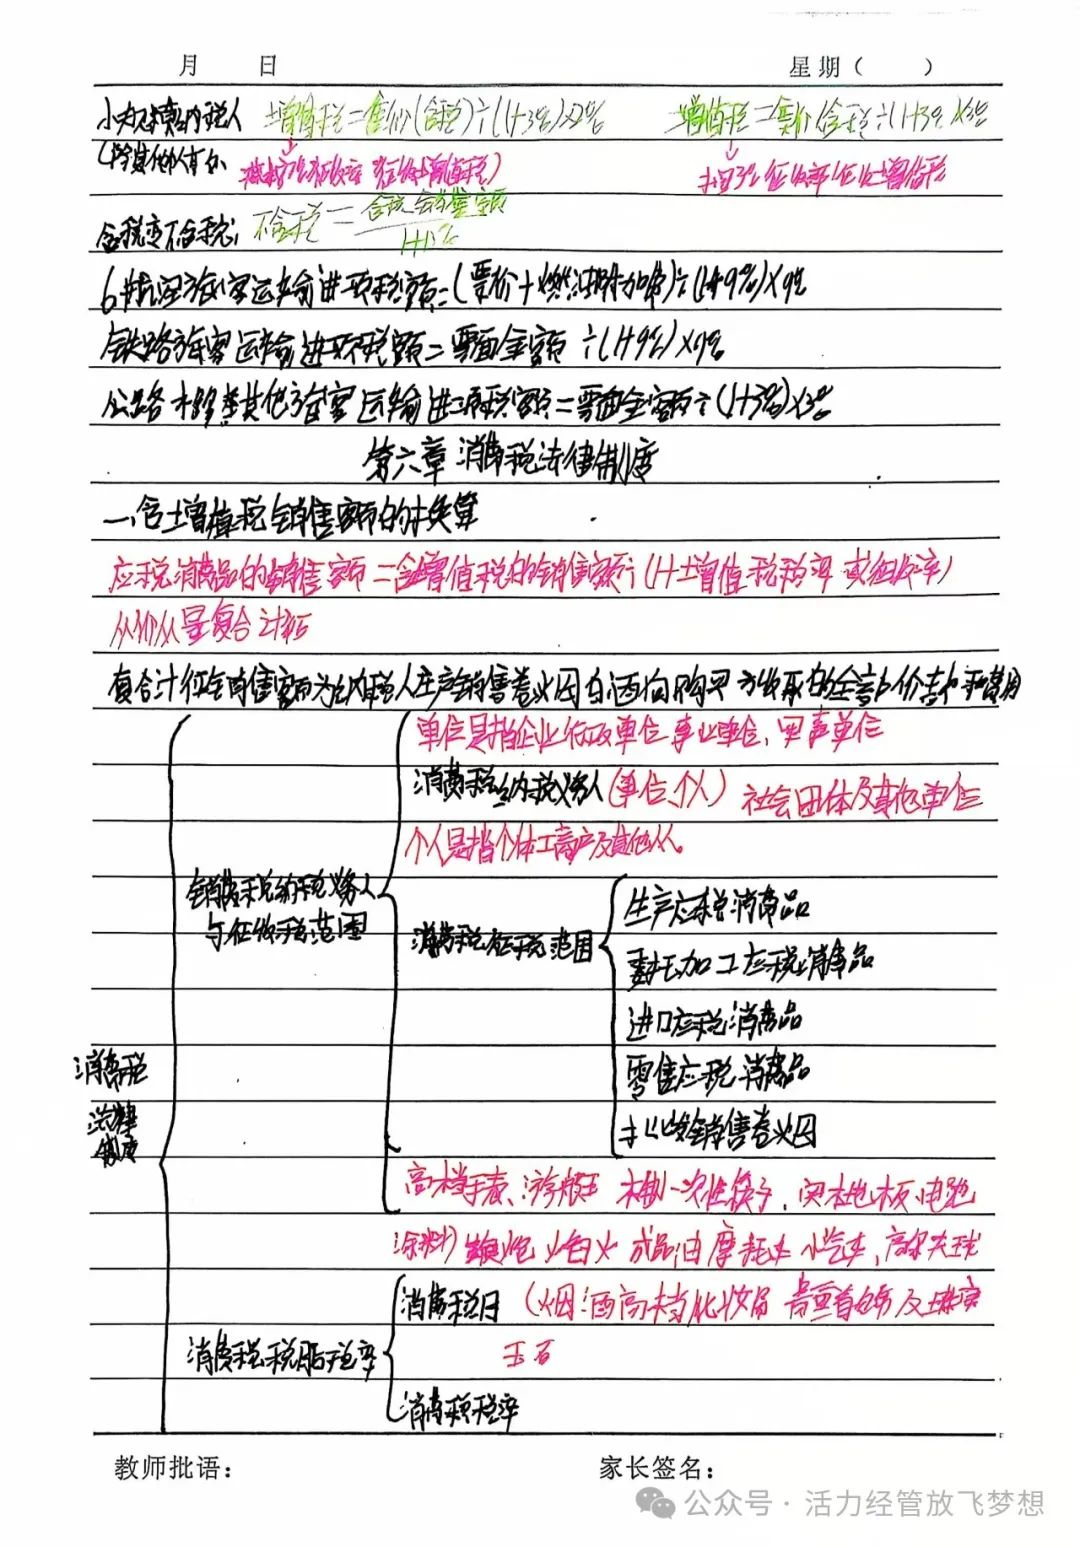 月 日 星期( )
小规模纳税人 增值税=售价(含税)÷(1+3%)×2% 增值税=售价含税÷(1+3%)×3%
(除其他个人外) 减按2%征收率征收增值税) 按3%征收率征收增值税
含税变不含税: 不含税=含税销售额/1+
6.航空旅客运输进项税额=(票价+燃油附加费)÷(1+9%)×9%
铁路旅客运输进项税额=票面金额÷(1+9%)×9%
公路水路等其他旅客运输进项税额=票面金额÷(1+3%)×3%
第六章 消费税法律制度
一、含增值税销售额的换算
应税消费品的销售额=含增值税的销售额÷(1+增值税税率或征收率)
从价从量复合计征
复合计征销售额为纳税人生产销售卷烟白酒向购买方收取的全部价款和费用
单位是指企业行政单位、事业单位、军事单位
消费税纳税义务人(单位、个人) 社会团体及其他单位
个人是指个体工商户及其他个人。
消费税纳税义务人
与征收税范围
消费税征税范围
生产应税消费品
委托加工应税消费品
进口应税消费品
零售应税消费品
批发销售卷烟
消费税
法律
制度
高档手表、游艇 木制一次性筷子、实木地板、电池
涂料)鞭炮 焰火 成品油 摩托车 小汽车,高尔夫球
消费税目 (烟酒高档化妆品 贵重首饰及珠宝
玉石
消费税税目税率
消费税税率
教师批语: 家长签名:
公众号·活力经管放飞梦想